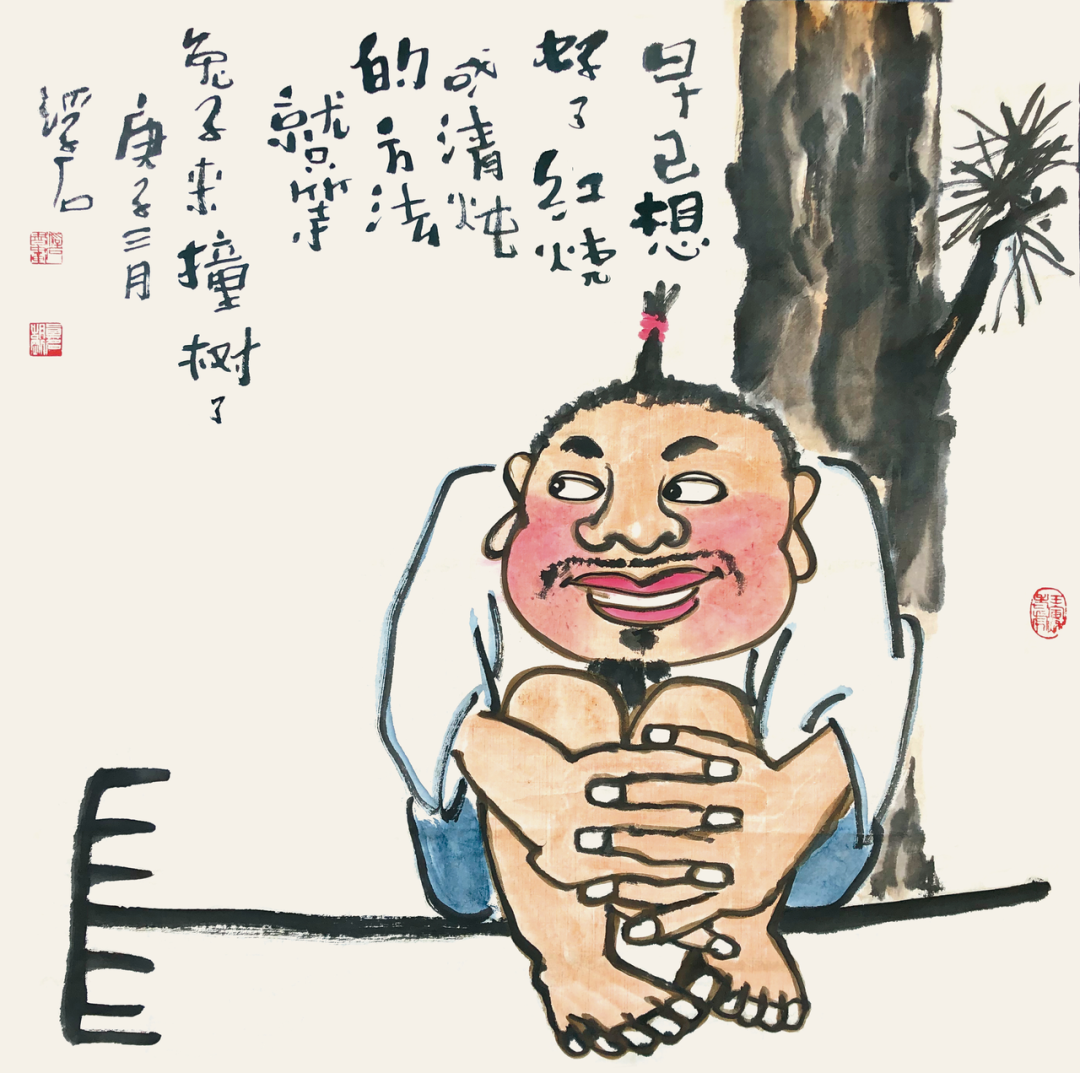 早已想
好了红烧
或清炖
的方法
就只等
兔子来撞树了
庚子三月
浮石